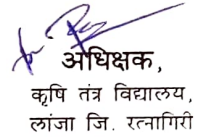 अधिक्षक,
कृषि तंत्र विद्यालय,
लांजा जि. रत्नागिरी